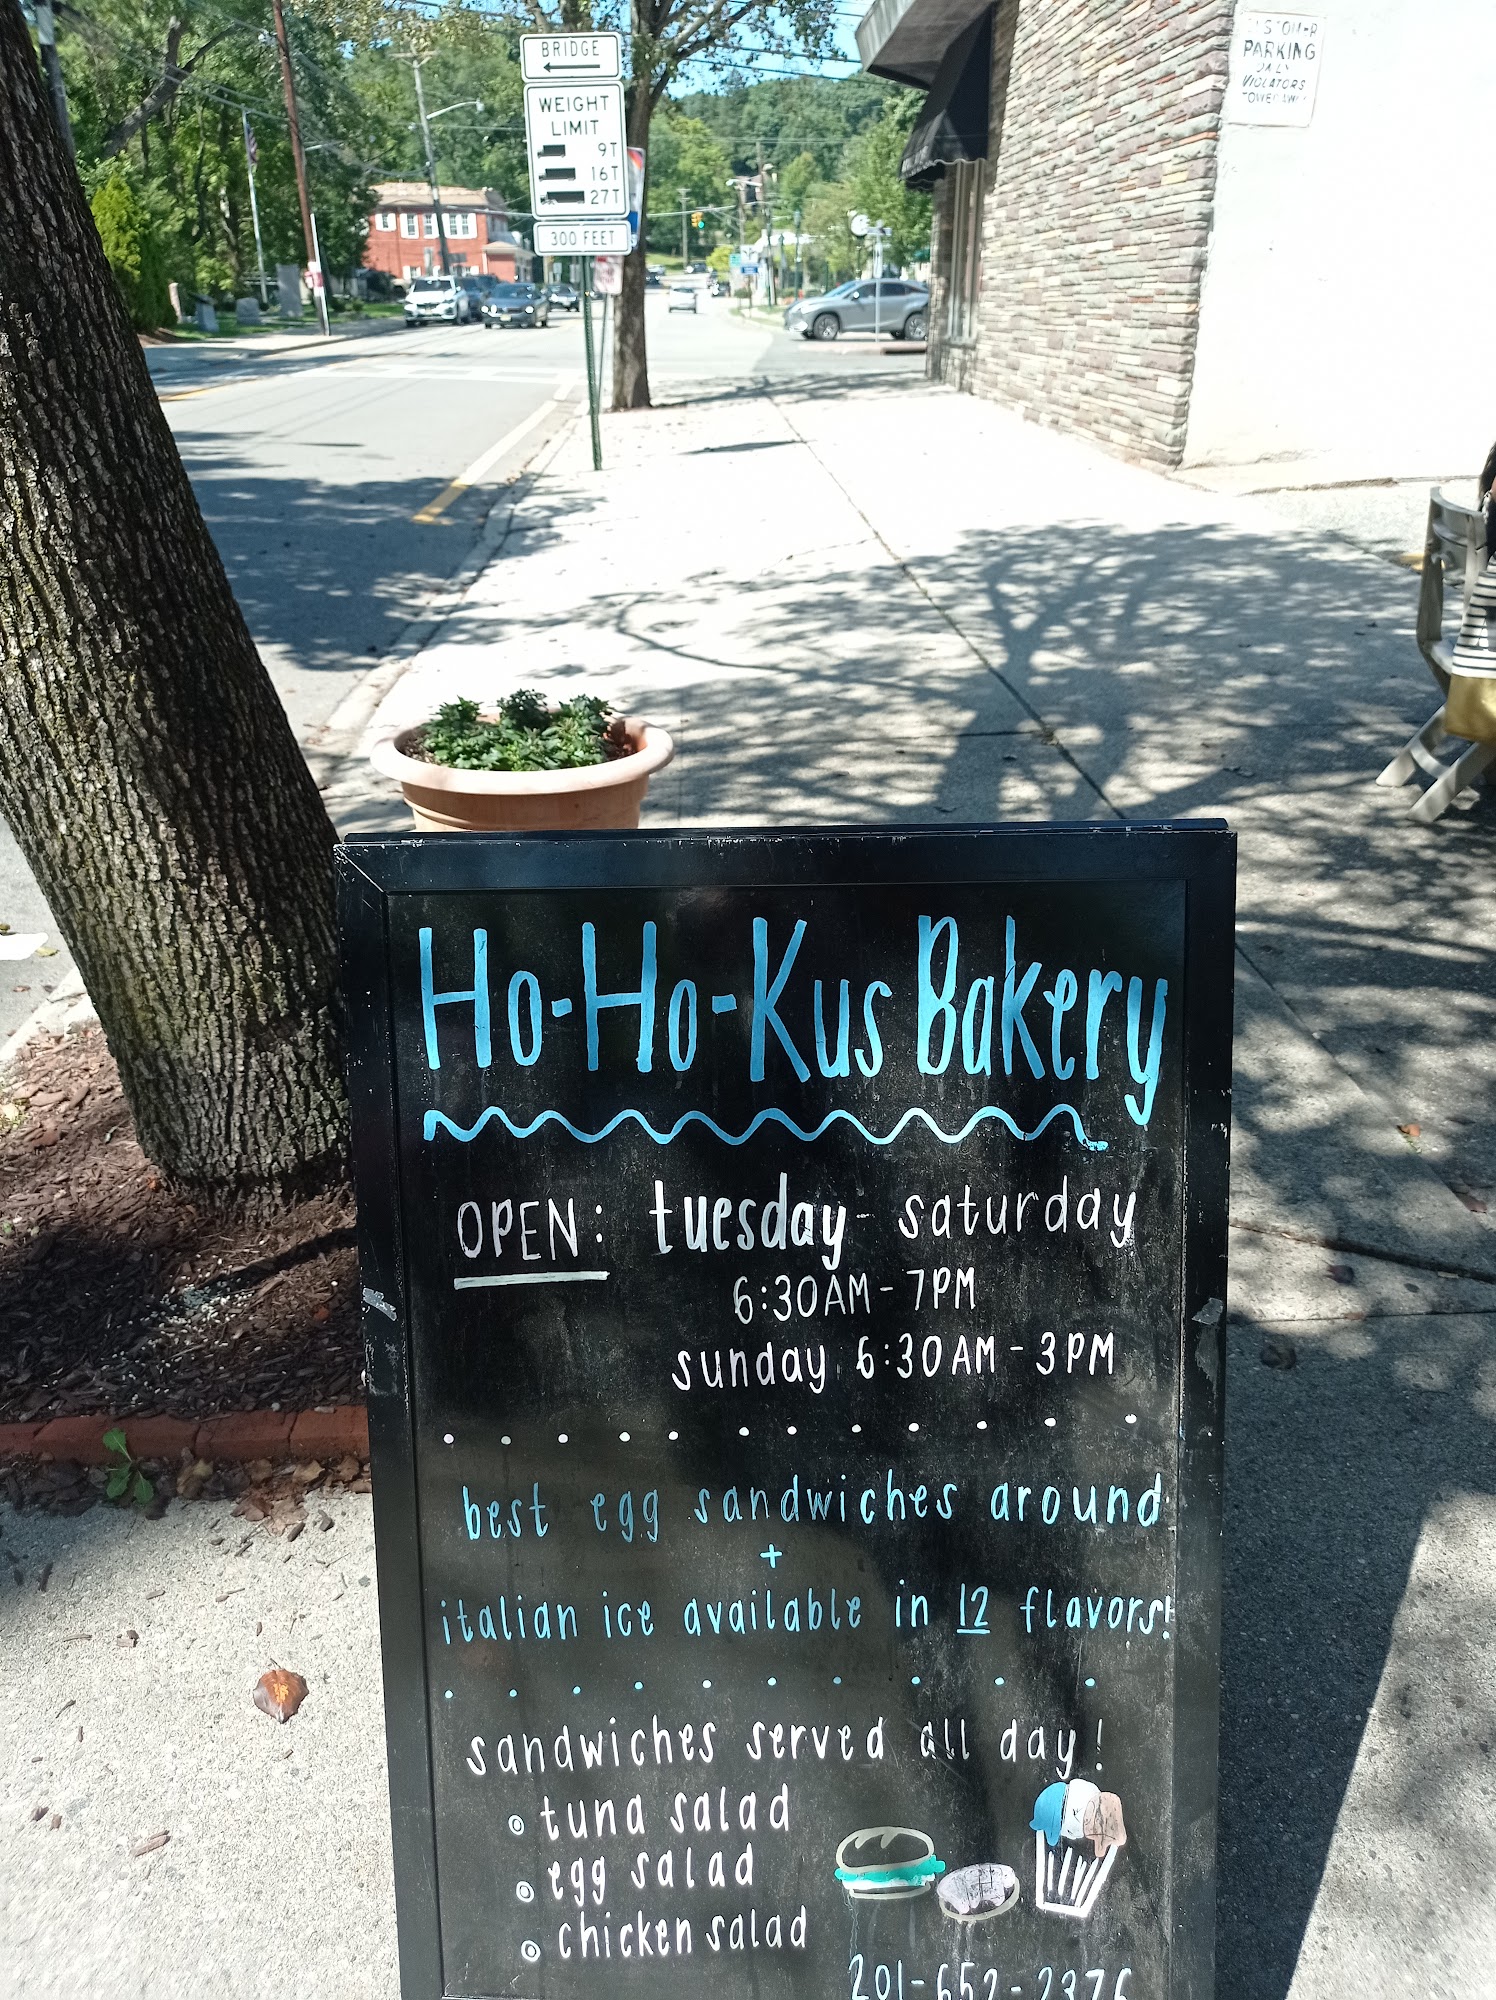 BRIDGE
WEIGHT
LIMIT
9T
16T
27T
300 FEET
PARKING
ONLY
VIOLATORS
Ho-Ho-Kus Bakery
OPEN: tuesday - saturday
6:30AM - 7PM
sunday 6:30AM - 3PM
best egg sandwiches around
+
italian ice available in 12 flavors!
sandwiches served all day!
tuna salad
egg salad
chicken salad
201-652-2376